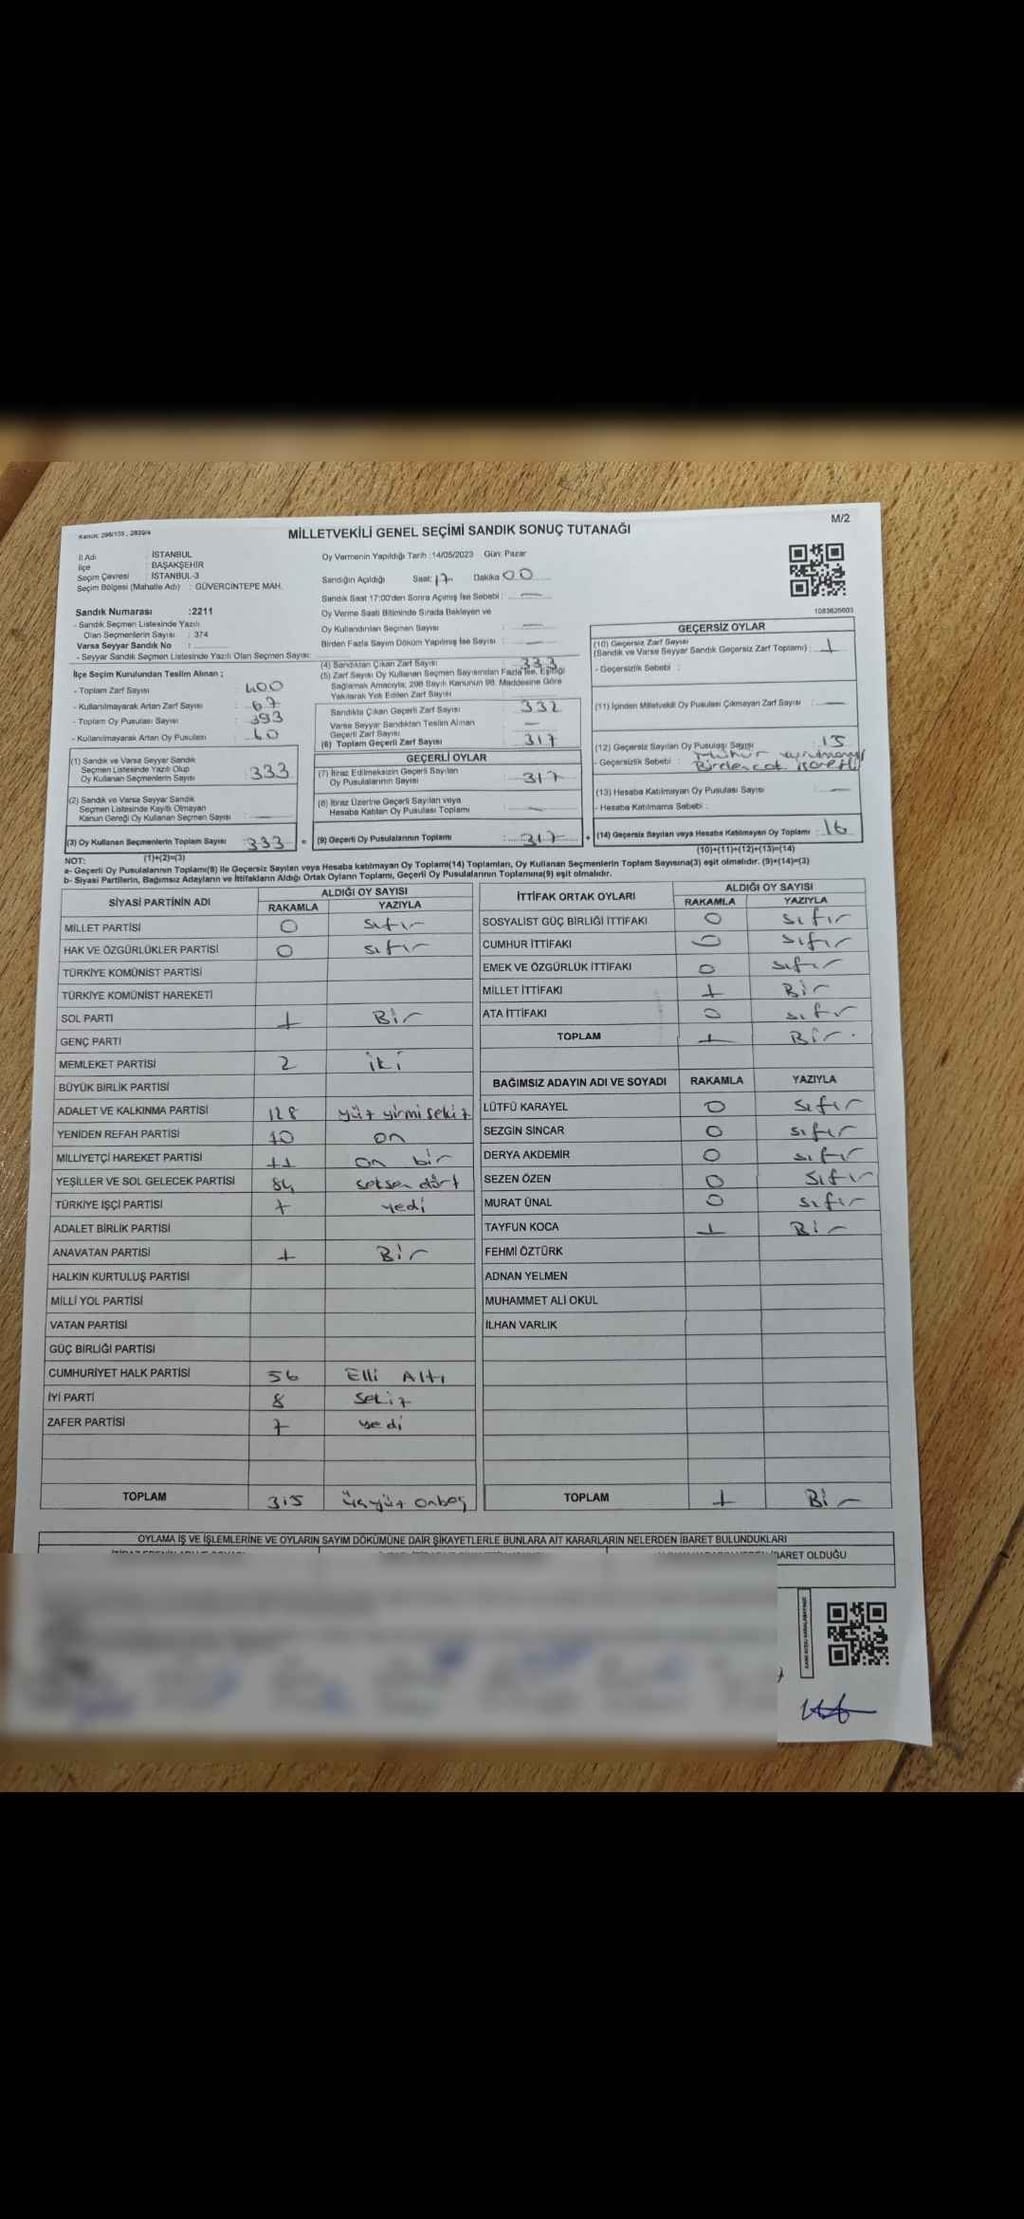 Kanun: 298/105, 2839/4
MİLLETVEKİLİ GENEL SEÇİMİ SANDIK SONUÇ TUTANAĞI
M/2
İl Adı : İSTANBUL
İlçe : BAŞAKŞEHİR
Seçim Çevresi : İSTANBUL-3
Seçim Bölgesi (Mahalle Adı) : GÜVERCİNTEPE MAH.
Sandık Numarası :2211
- Sandık Seçmen Listesinde Yazılı
Olan Seçmenlerin Sayısı : 374
Varsa Seyyar Sandık No :
- Seyyar Sandık Seçmen Listesinde Yazılı Olan Seçmen Sayısı:
İlçe Seçim Kurulundan Teslim Alınan ;
- Toplam Zarf Sayısı : 400
- Kullanılmayarak Artan Zarf Sayısı : 67
- Toplam Oy Pusulası Sayısı : 393
- Kullanılmayarak Artan Oy Pusulası : 60
(1) Sandık ve Varsa Seyyar Sandık
Seçmen Listesinde Yazılı Olup
Oy Kullanan Seçmenlerin Sayısı : 333
(2) Sandık ve Varsa Seyyar Sandık
Seçmen Listesinde Kayıtlı Olmayan
Kanun Gereği Oy Kullanan Seçmen Sayısı : —
(3) Oy Kullanan Seçmenlerin Toplam Sayısı : 333 =
(1)+(2)=(3)
Oy Vermenin Yapıldığı Tarih :14/05/2023 Gün: Pazar
Sandığın Açıldığı Saat: 17 Dakika 00
Sandık Saat 17:00'den Sonra Açılmış İse Sebebi : —
Oy Verme Saati Bitiminde Sırada Bekleyen ve
Oy Kullandırılan Seçmen Sayısı : —
Birden Fazla Sayım Döküm Yapılmış İse Sayısı : —
(4) Sandıktan Çıkan Zarf Sayısı : 333
(5) Zarf Sayısı Oy Kullanan Seçmen Sayısından Fazla İse, Eşitliği
Sağlamak Amacıyla; 298 Sayılı Kanunun 98. Maddesine Göre
Yakılarak Yok Edilen Zarf Sayısı
Sandıkta Çıkan Geçerli Zarf Sayısı : 332
Varsa Seyyar Sandıktan Teslim Alınan
Geçerli Zarf Sayısı : —
(6) Toplam Geçerli Zarf Sayısı : 317
GEÇERLİ OYLAR
(7) İtiraz Edilmeksizin Geçerli Sayılan
Oy Pusulalarının Sayısı : 317
(8) İtiraz Üzerine Geçerli Sayılan veya
Hesaba Katılan Oy Pusulası Toplamı : —
(9) Geçerli Oy Pusulalarının Toplamı : 317 +
1083626603
GEÇERSİZ OYLAR
(10) Geçersiz Zarf Sayısı
(Sandık ve Varsa Seyyar Sandık Geçersiz Zarf Toplamı) : 1
- Geçersizlik Sebebi :
(11) İçinden Milletvekili Oy Pusulası Çıkmayan Zarf Sayısı : —
(12) Geçersiz Sayılan Oy Pusulası Sayısı : 15
- Geçersizlik Sebebi : Mühür
(13) Hesaba Katılmayan Oy Pusulası Sayısı : —
- Hesaba Katılmama Sebebi :
(14) Geçersiz Sayılan veya Hesaba Katılmayan Oy Toplamı : 16
(10)+(11)+(12)+(13)=(14)
NOT:
a- Geçerli Oy Pusulalarının Toplamı(9) ile Geçersiz Sayılan veya Hesaba katılmayan Oy Toplam(14) Toplamları, Oy Kullanan Seçmenlerin Toplam Sayısına(3) eşit olmalıdır. (9)+(14)=(3)
b- Siyasi Partilerin, Bağımsız Adayların ve İttifakların Aldığı Ortak Oyların Toplamı, Geçerli Oy Pusulalarının Toplamına(9) eşit olmalıdır.
SİYASİ PARTİNİN ADI ALDIĞI OY SAYISI
RAKAMLA YAZIYLA
MİLLET PARTİSİ 0 sıfır
HAK VE ÖZGÜRLÜKLER PARTİSİ 0 sıfır
TÜRKİYE KOMÜNİST PARTİSİ
TÜRKİYE KOMÜNİST HAREKETİ
SOL PARTİ 1 Bir
GENÇ PARTİ
MEMLEKET PARTİSİ 2 iki
BÜYÜK BİRLİK PARTİSİ
ADALET VE KALKINMA PARTİSİ 128 yüz yirmi sekiz
YENİDEN REFAH PARTİSİ 10 on
MİLLİYETÇİ HAREKET PARTİSİ 11 on bir
YEŞİLLER VE SOL GELECEK PARTİSİ 84 seksen dört
TÜRKİYE İŞÇİ PARTİSİ 7 yedi
ADALET BİRLİK PARTİSİ
ANAVATAN PARTİSİ 1 Bir
HALKIN KURTULUŞ PARTİSİ
MİLLİ YOL PARTİSİ
VATAN PARTİSİ
GÜÇ BİRLİĞİ PARTİSİ
CUMHURİYET HALK PARTİSİ 56 Elli Altı
İYİ PARTİ 8 sekiz
ZAFER PARTİSİ 7 yedi
TOPLAM 315 üçyüz onbeş
İTTİFAK ORTAK OYLARI ALDIĞI OY SAYISI
RAKAMLA YAZIYLA
SOSYALİST GÜÇ BİRLİĞİ İTTİFAKI 0 sıfır
CUMHUR İTTİFAKI 0 sıfır
EMEK VE ÖZGÜRLÜK İTTİFAKI 0 sıfır
MİLLET İTTİFAKI 1 Bir
ATA İTTİFAKI 0 sıfır
TOPLAM 1 Bir.
BAĞIMSIZ ADAYIN ADI VE SOYADI RAKAMLA YAZIYLA
LÜTFÜ KARAYEL 0 sıfır
SEZGİN SİNCAR 0 sıfır
DERYA AKDEMİR 0 sıfır
SEZEN ÖZEN 0 sıfır
MURAT ÜNAL 0 sıfır
TAYFUN KOCA 1 Bir
FEHMİ ÖZTÜRK
ADNAN YELMEN
MUHAMMET ALİ OKUL
İLHAN VARLIK
TOPLAM 1 Bir
OYLAMA İŞ VE İŞLEMLERİNE VE OYLARIN SAYIM DÖKÜMÜNE DAİR ŞİKAYETLERLE BUNLARA AİT KARARLARIN NELERDEN İBARET BULUNDUKLARI
BARET OLDUĞU